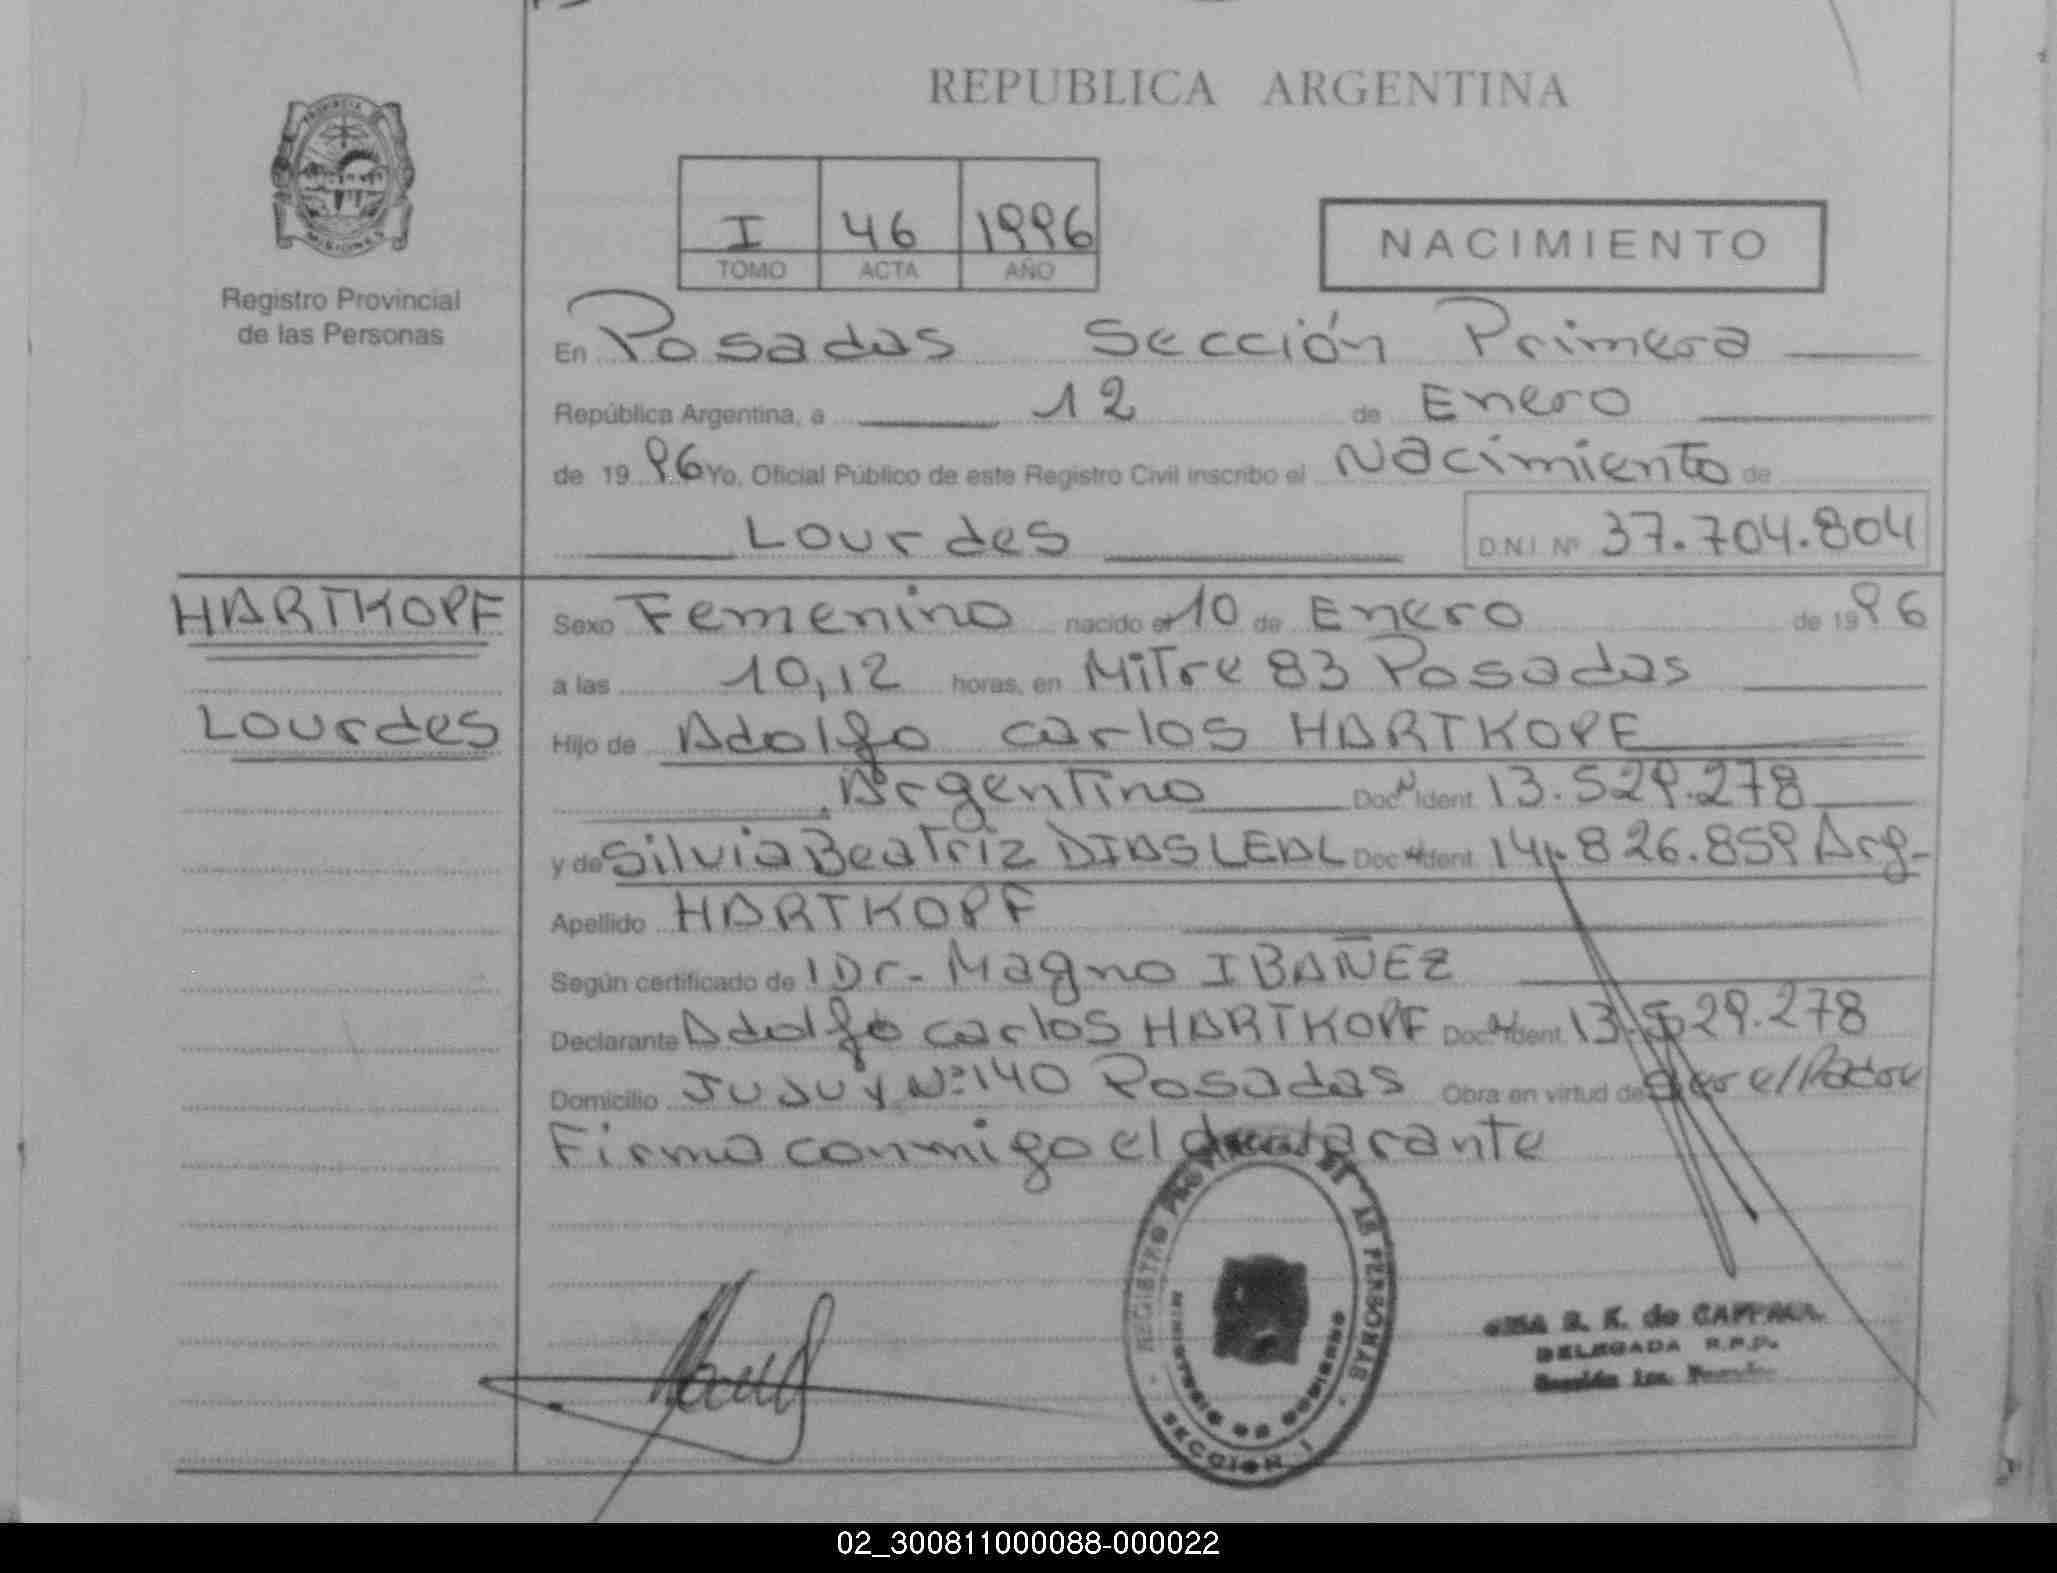 REPUBLICA ARGENTINA
PROVINCIA
MISIONES
Registro Provincial
de las Personas
I 46 1996
TOMO ACTA AÑO
NACIMIENTO
En Posadas Sección Primera
República Argentina, a 12 de Enero
de 1996 Yo, Oficial Público de este Registro Civil inscribo el Nacimiento de
Lourdes D.N.I. Nº 37.704.804
HARTKOPF
Lourdes
Sexo Femenino nacido el 10 de Enero de 1996
a las 10,12 horas, en Mitre 83 Posadas
Hijo de Adolfo Carlos HARTKOPF
Argentino Doc. Ident. 13.529.278
y de Silvia Beatriz DIAS LEAL Doc. Ident. 14.826.859 Arg-
Apellido HARTKOPF
Según certificado de Dr- Magno IBAÑEZ
Declarante Adolfo Carlos HARTKOPF Doc. Ident. 13.529.278
Domicilio JuJuy Nº 140 Posadas Obra en virtud de ser el Padre
Firma conmigo el declarante
REGISTRO PROVINCIAL DE LAS PERSONAS
MINISTERIO DE GOBIERNO
SECCION I
R. K. de
DELEGADA R.P.P.
Sección 1ra.
02_300811000088-000022